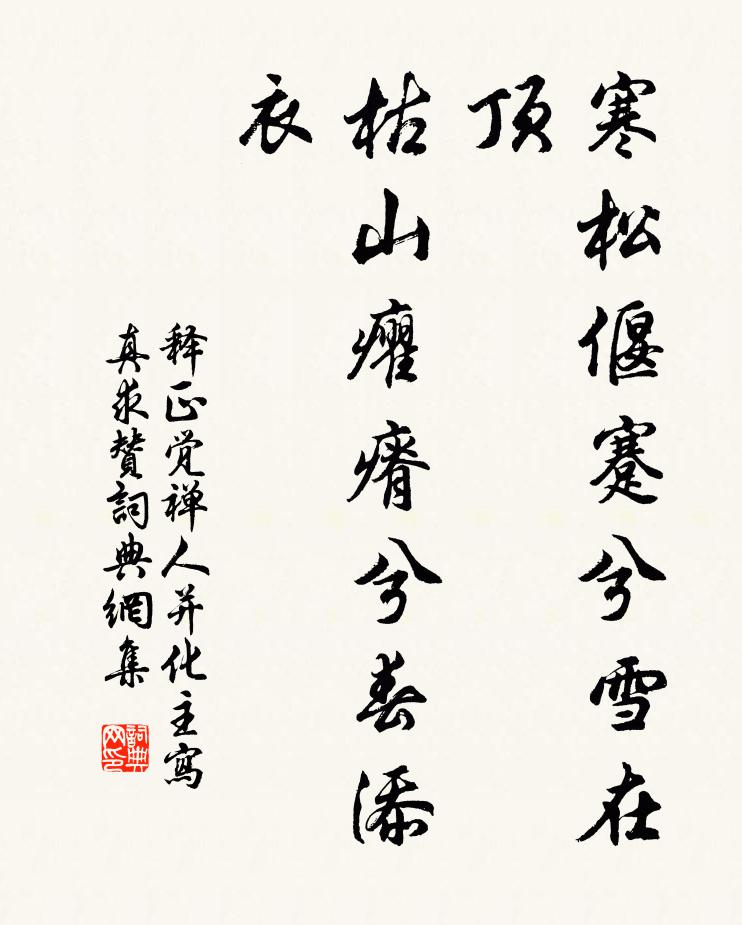 寒松偃蹇兮雪在
顶
枯山癯瘠兮春添
衣
释正觉禅人并化主寫
真求賛詞典網集
詞典
网印